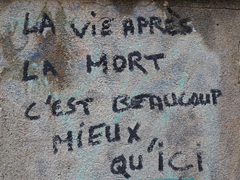 LA VIE APRÈS
LA MORT
C'EST BEAUCOUP
MIEUX
QU'ICI